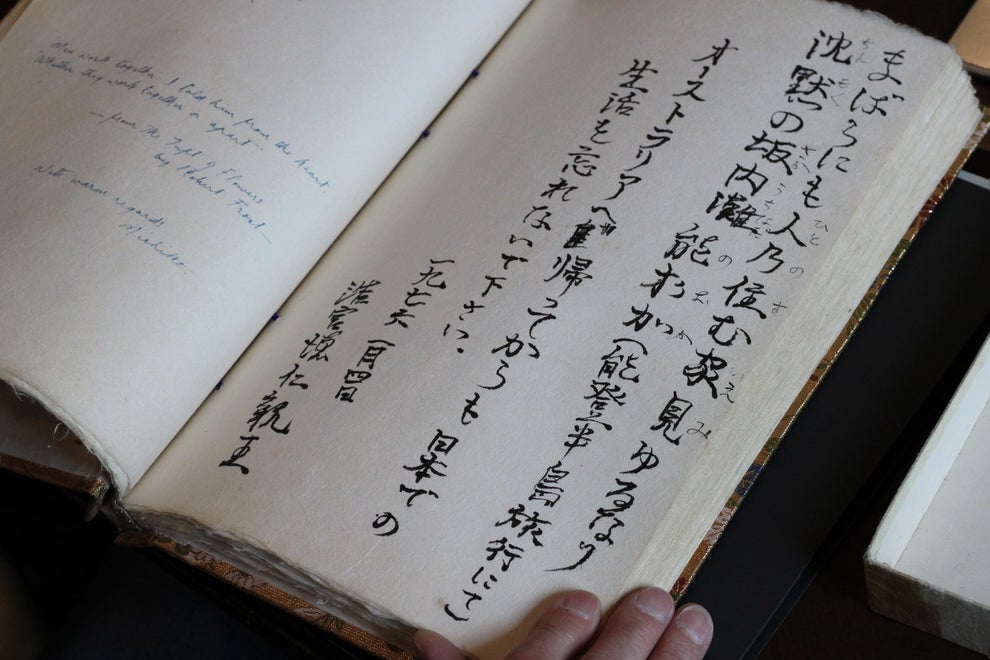 "Men work together I told him from the heart
"Whether they work together or apart.
— from The Tuft of Flowers
by Robert Frost —
With warm regards
Michiko.
まばらにも人乃住む家見ゆるなり
沈黙の坂内灘能おか（能登半島旅行にて）
オーストラリアへ帰ってからも日本での
生活を忘れないで下さい.
一九七六 一月四日
浩宮徳仁親王